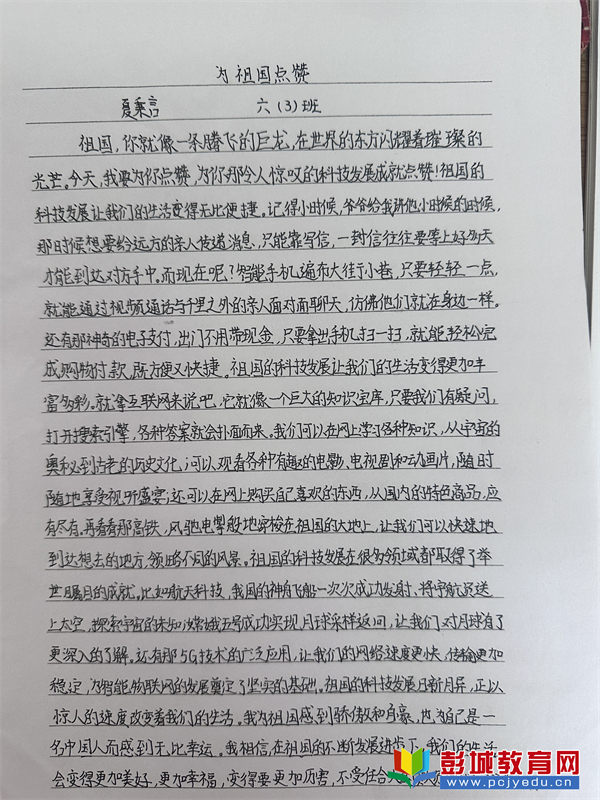 为祖国点赞
夏秉言 六(3)班
祖国,你就像一条腾飞的巨龙,在世界的东方闪耀着璀璨的
光芒。今天,我要为你点赞,为你那令人惊叹的科技发展成就点赞!祖国的
科技发展让我们的生活变得无比便捷。记得小时候,爷爷给我讲他小时候的时候,
那时候想要给远方的亲人传递消息,只能靠写信,一封信往往要等上好多天
才能到达对方手中。而现在呢?智能手机遍布大街小巷,只要轻轻一点,
就能通过视频通话与千里之外的亲人面对面聊天,仿佛他们就在身边一样。
还有那神奇的电子支付,出门不用带现金,只要拿出手机扫一扫,就能轻松完
成购物付款,既方便又快捷。祖国的科技发展让我们的生活变得更加丰
富多彩。就拿互联网来说吧,它就像一个巨大的知识宝库,只要我们有疑问,
打开搜索引擎,各种答案就会扑面而来。我们可以在网上学习各种知识,从宇宙的
奥秘到古老的历史文化,可以观看各种有趣的电影、电视剧和动画片,随时
随地享受视听盛宴;还可以在网上购买自己喜欢的东西,从国内的特色商品,应
有尽有。再看看那高铁,风驰电掣般地穿梭在祖国的大地上,让我们可以快速地
到达想去的地方,领略不同的风景。祖国的科技发展在很多领域都取得了举
世瞩目的成就。比如航天科技,我国的神舟飞船一次次成功发射,将宇航员送
上太空,探索宇宙的未知;嫦娥五号成功实现月球采样返回,让我们对月球有了
更深入的了解。还有那5G技术的广泛应用,让我们的网络速度更快,传输更加
稳定,为智能物联网的发展奠定了坚实的基础。祖国的科技发展日新月异,正以
惊人的速度改变着我们的生活。我为祖国感到骄傲和自豪,也为自己是一
名中国人而感到无比幸运。我相信,在祖国的不断发展进步下,我们的生活
会变得更加美好,更加幸福,变得要更加厉害,不受任
彭城教育网
www.pcjyedu.cn